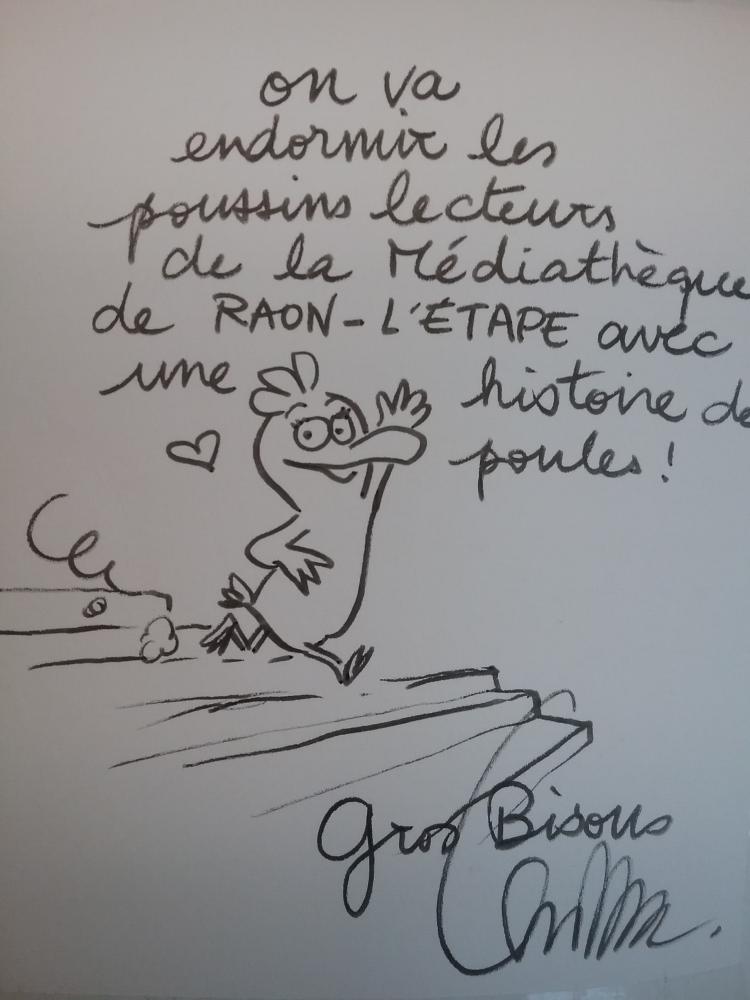 on va
endormir les
poussins lecteurs
de la Médiathèque
de RAON-L'ÉTAPE avec
une histoire de
poules !
Gros Bisous